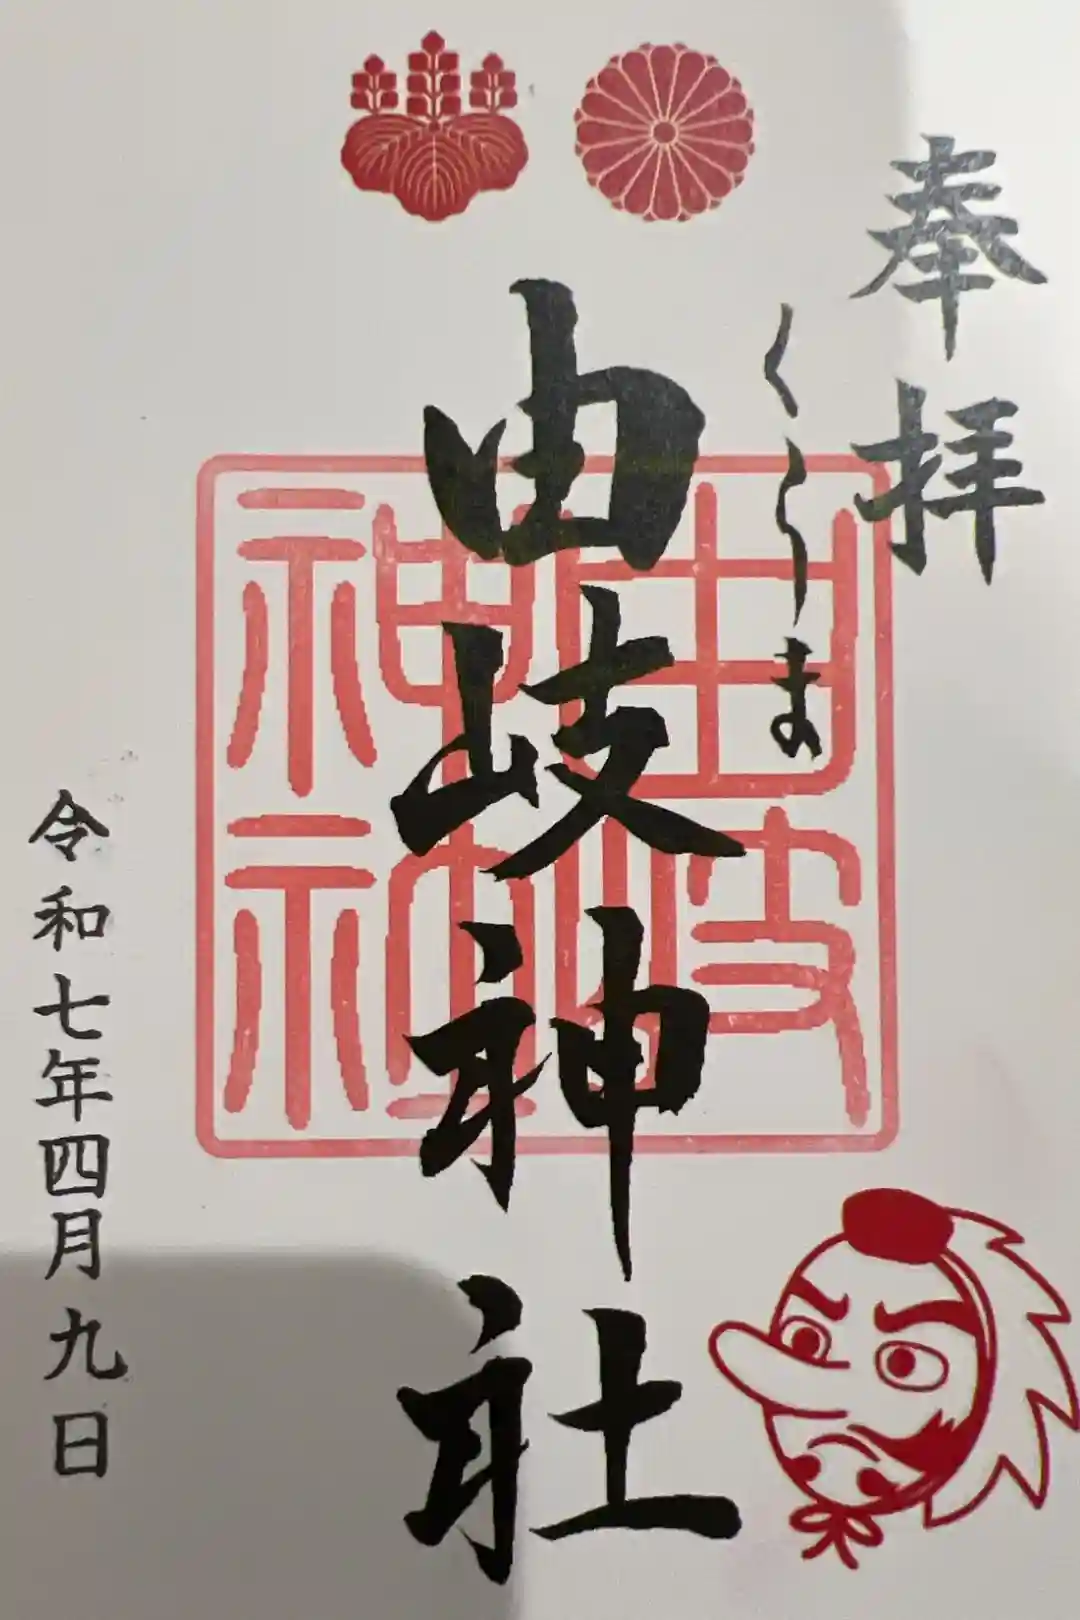 奉拝
くらま
由岐神社
由岐神社
令和七年四月九日